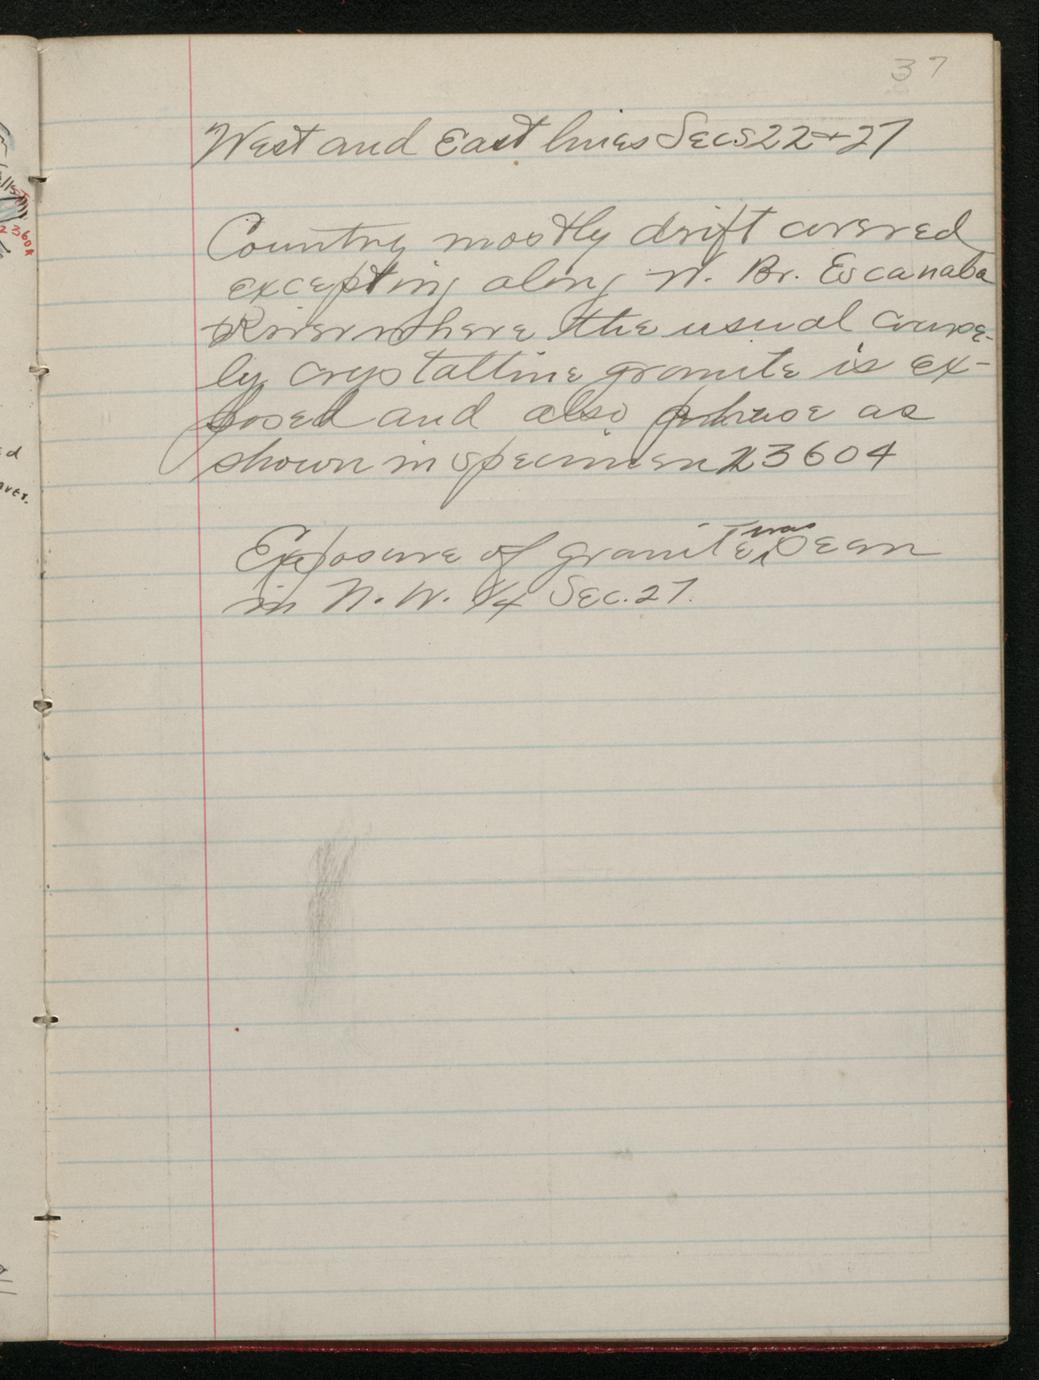 37
West and East lines Secs 22 + 27
Country mostly drift covered
excepting along W. Br. Escanaba
River where the usual coarse-
ly crystalline granite is ex-
posed and also phase as
shown in specimen 23604
Exposure of granite was seen
in N. W. 1/4 Sec. 27.